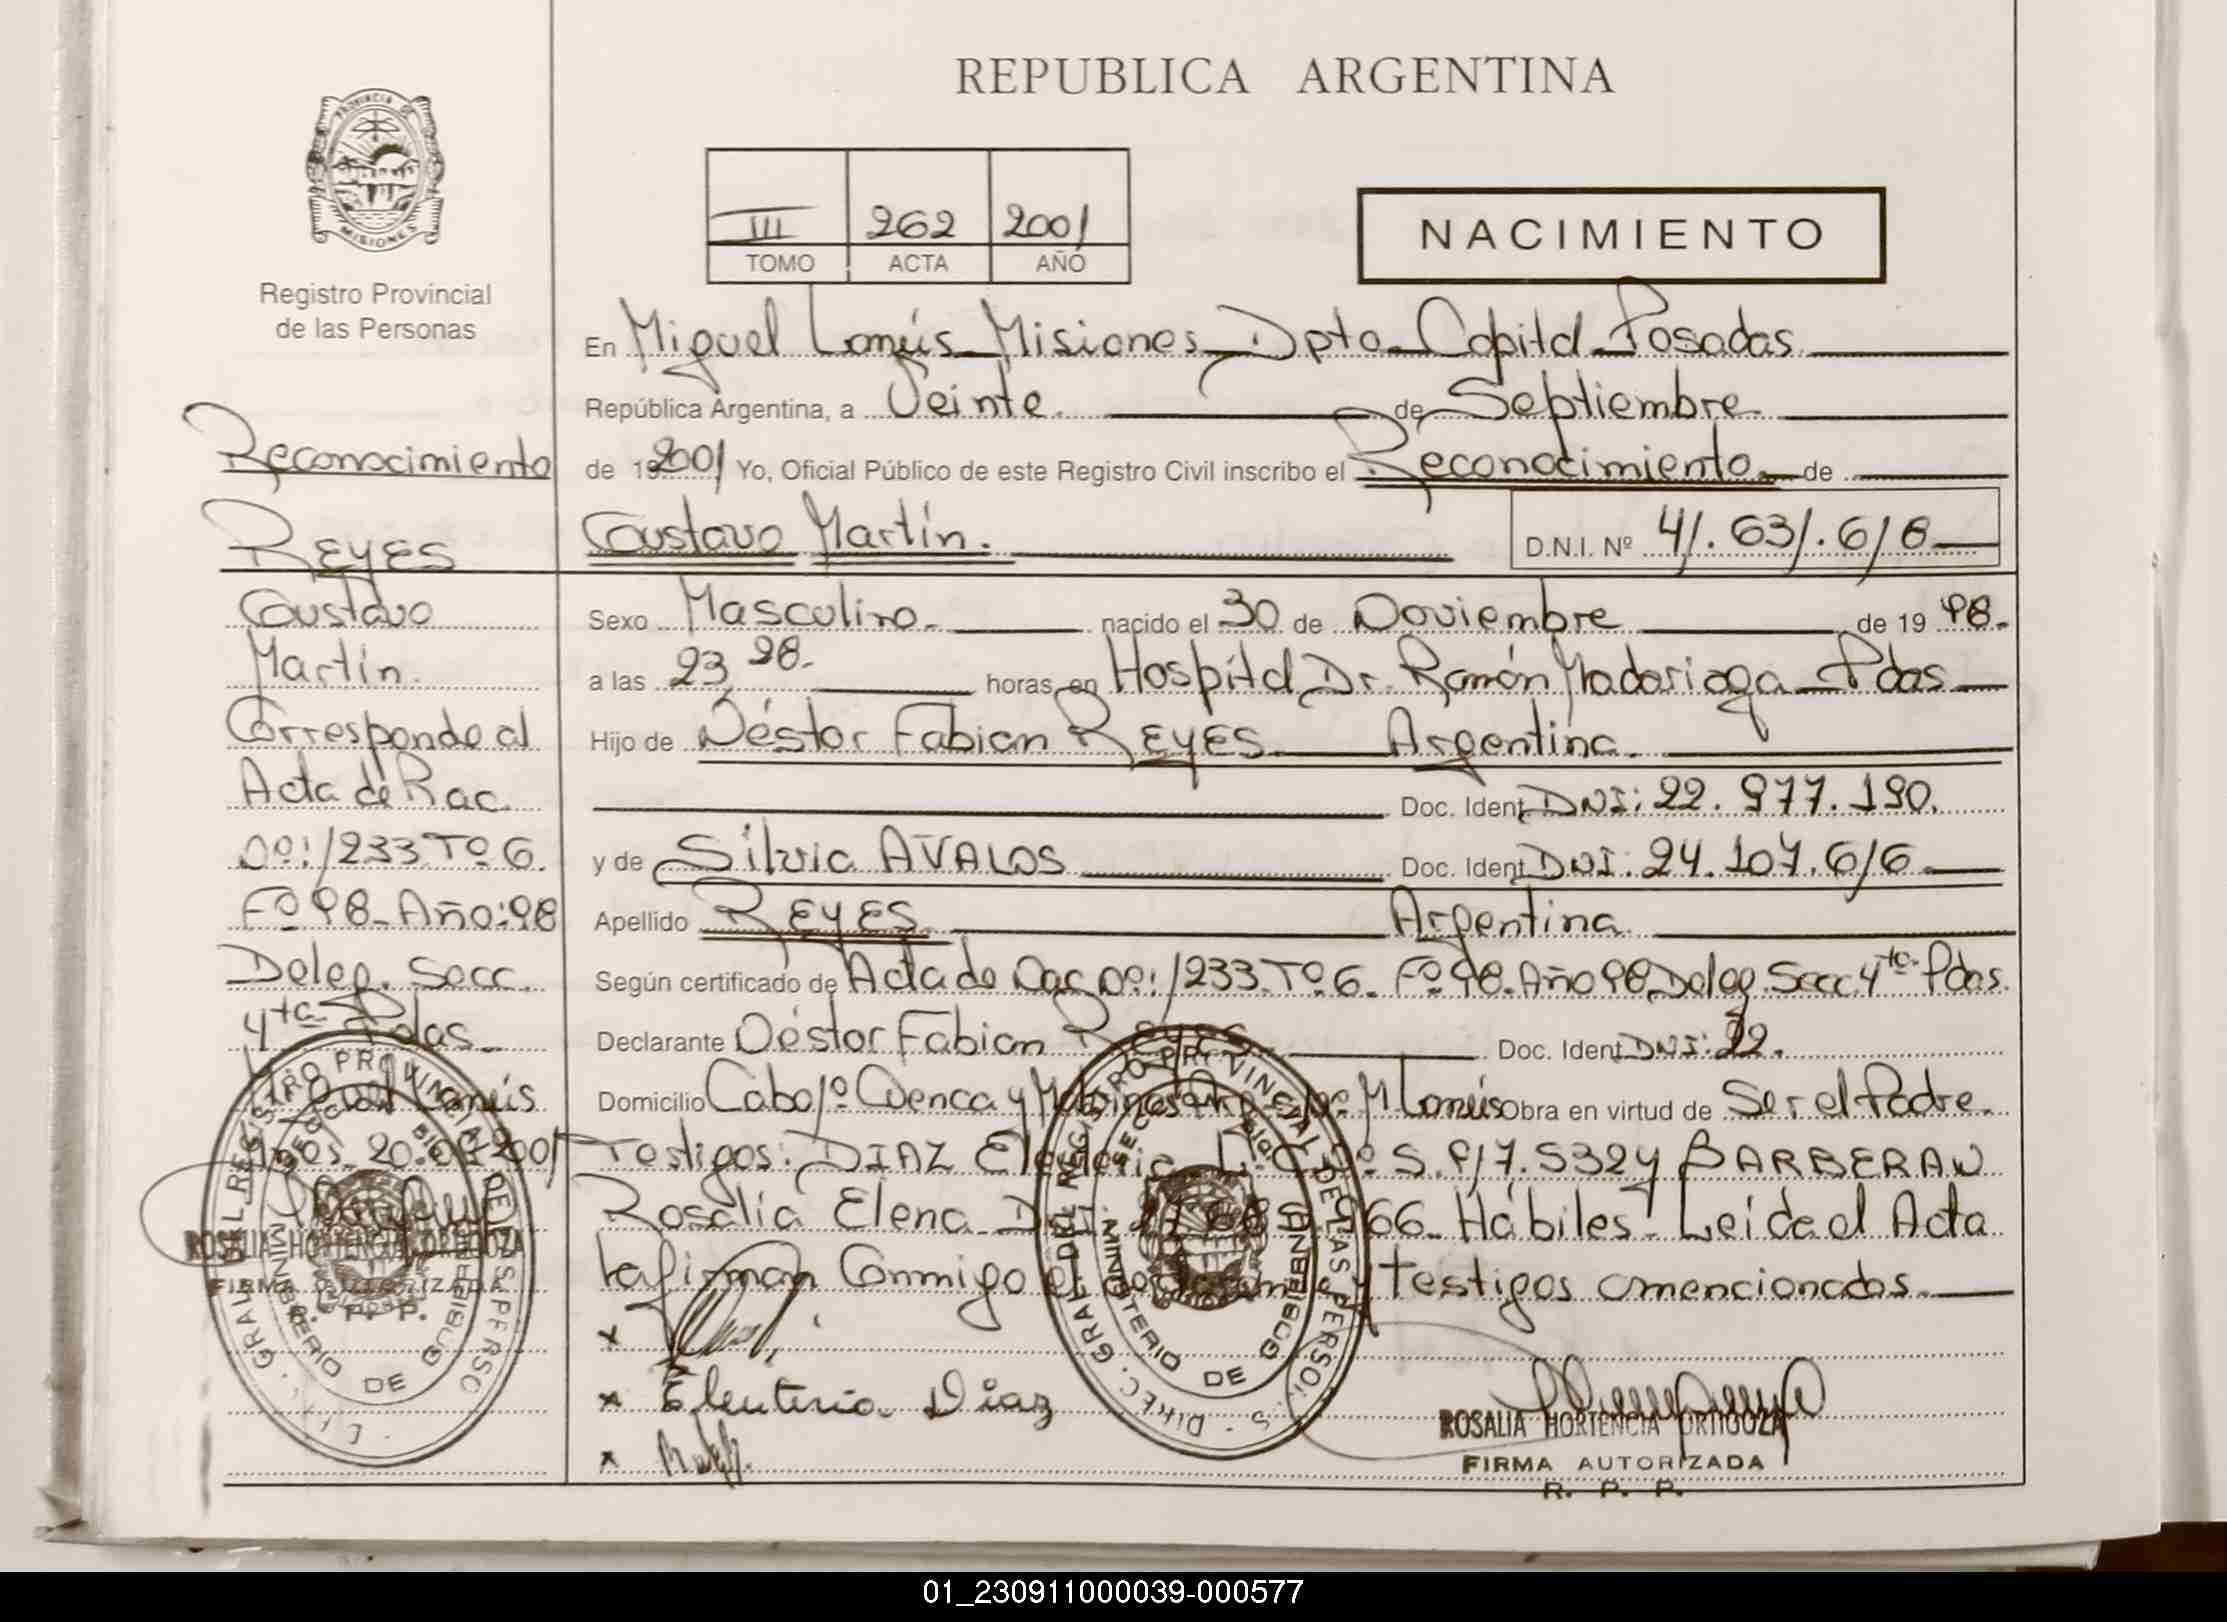 REPUBLICA ARGENTINA
PROVINCIA DE
MISIONES
Registro Provincial
de las Personas
III 262 2001
TOMO ACTA AÑO
NACIMIENTO
En Miguel Lanús Misiones Dpto Capital Posadas
República Argentina, a Veinte de Septiembre
de 19 2001 Yo, Oficial Público de este Registro Civil inscribo el Reconocimiento de
Gustavo Martín. D.N.I. Nº 41.631.618
Sexo Masculino nacido el 30 de Noviembre de 19 98.
a las 23 28. horas en Hospital Dr. Ramón Madariaga Pdas
Hijo de Néstor Fabian REYES Argentina.
Doc. Ident DNI: 22.977.190.
y de Silvia AVALOS Doc. Ident DNI: 24.107.616
Apellido REYES Argentina
Según certificado de Acta de Nac Nº: 1233. Tº 6. Fº 98. Año 98 Deleg. Secc 4ta Pdas.
Declarante Néstor Fabian Reyes Doc. Ident DNI: 22.
Domicilio Cabo 1º Cuenca y M Lanús obra en virtud de Ser el Padre.
Testigos: DIAZ S. 917.532 y BARBERAN
Rosalía Elena 66. Hábiles. Leida el Acta
la firman Conmigo el y testigos mencionados.
Eleuteria Diaz
ROSALIA HORTENCIA ORTIGOZA
FIRMA AUTORIZADA
R. P. P.
Reconocimiento
REYES
Gustavo
Martín.
Corresponde al
Acta de Nac.
Nº: 1233 Tº 6.
Fº 98 - Año: 98
Deleg. Secc.
4ta Pdas.
Lanús
20.09.2001
ROSALIA HORTENCIA ORTIGOZA
FIRMA AUTORIZADA
R. P. P.
DIREC. GRAL DEL REGISTRO PROVINCIAL DE LAS PERSONAS
MINISTERIO DE GOBIERNO
01_230911000039-000577